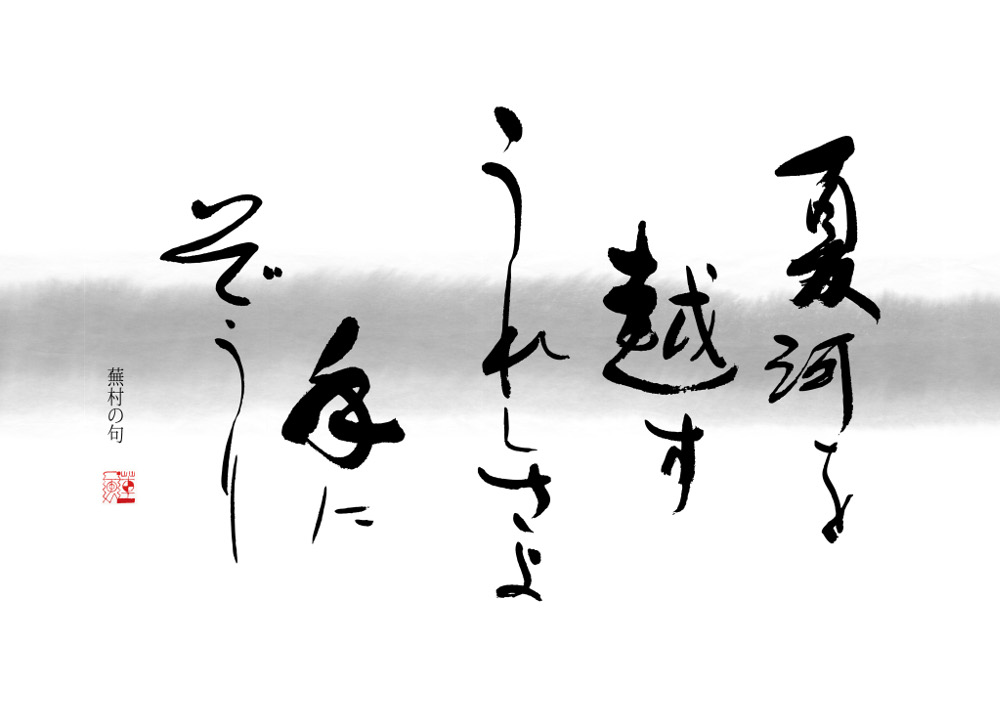 夏河を
越す
うれしさよ
手に
ぞうり
蕪村の句